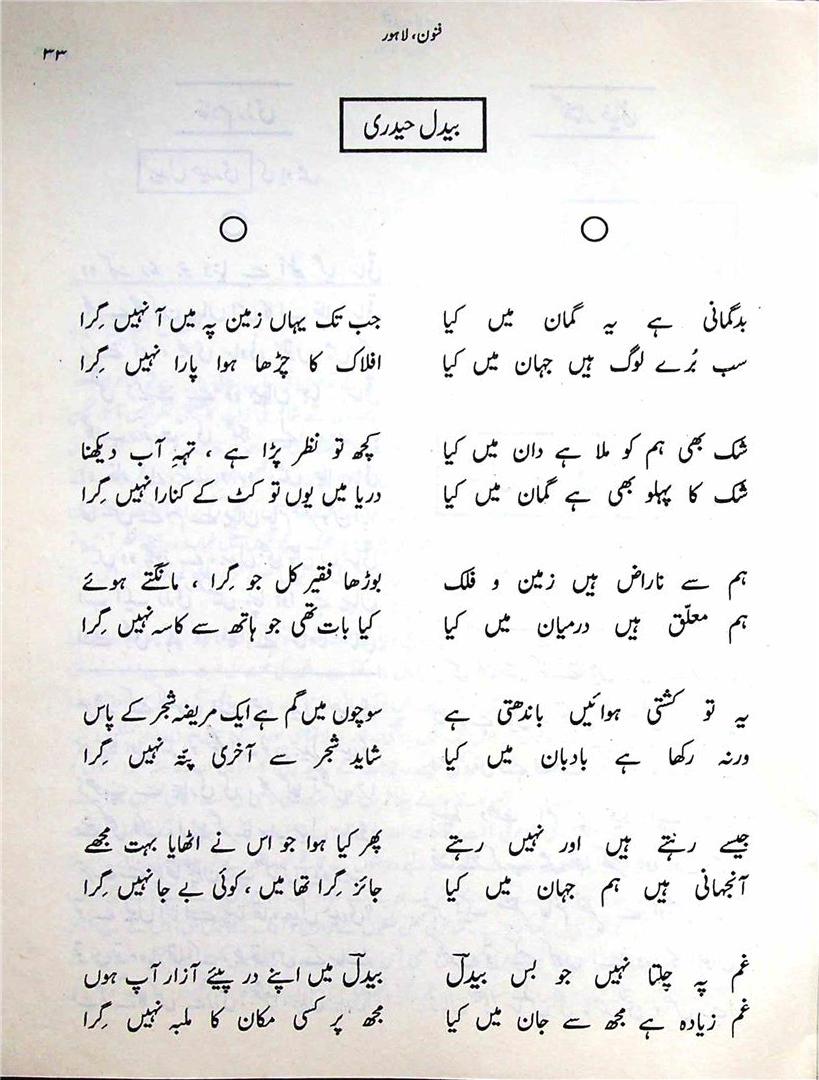 فنون، لاہور
۳۳
بیدل حیدری
بدگمانی ہے یہ گمان میں کیا
سب بُرے لوگ ہیں جہان میں کیا
شک بھی ہم کو ملا ہے دان میں کیا
شک کا پہلو بھی ہے گمان میں کیا
ہم سے ناراض ہیں زمین و فلک
ہم معلّق ہیں درمیان میں کیا
یہ تو کشتی ہوائیں باندھتی ہے
ورنہ رکھا ہے بادبان میں کیا
جیسے رہتے ہیں اور نہیں رہتے
آنجہانی ہیں ہم جہان میں کیا
غم پہ چلتا نہیں جو بس بیدلؔ
غم زیادہ ہے مجھ سے جان میں کیا
جب تک یہاں زمین پہ میں آ نہیں گِرا
افلاک کا چڑھا ہوا پارا نہیں گِرا
کچھ تو نظر پڑا ہے ، تہہِ آب دیکھنا
دریا میں یوں تو کٹ کے کنارا نہیں گِرا
بوڑھا فقیر کل جو گِرا ، مانگتے ہوئے
کیا بات تھی جو ہاتھ سے کاسہ نہیں گِرا
سوچوں میں گم ہے ایک مریضہ شجر کے پاس
شاید شجر سے آخری پتّہ نہیں گِرا
پھر کیا ہوا جو اس نے اٹھایا بہت مجھے
جائز گِرا تھا میں ، کوئی بے جا نہیں گِرا
بیدلؔ میں اپنے در پیئے آزار آپ ہوں
مجھ پر کسی مکان کا ملبہ نہیں گِرا